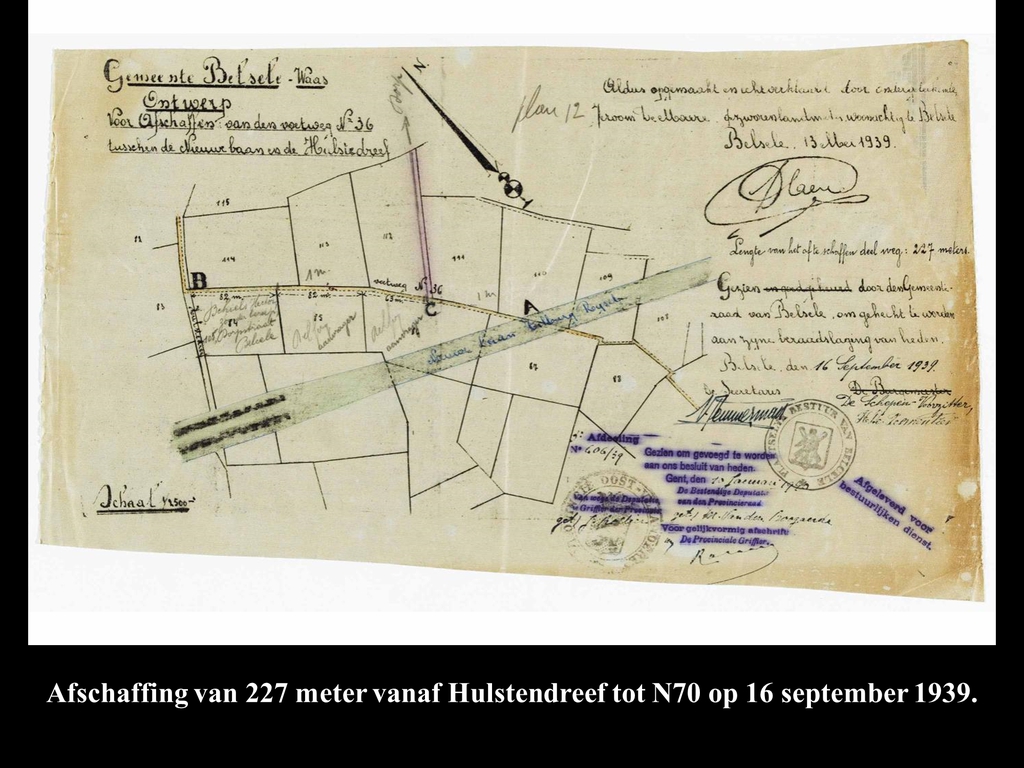 Gemeente Belsele - Waas
Ontwerp
Voor Afschaffen van den voetweg N° 36
tusschen de Nieuwe baan en de Hulstedreef
plan 12
N.
Aldus opgemaakt en echt verklaard door
gezworen landmeter, woonachtig te Belsele
Belsele, 13 Mei 1939.
Lengte van het af te schaffen deel weg: 227 meters
Gezien en goedgekeurd door den Gemeente-
raad van Belsele, om gehecht te worden
aan zijne beraadslaging van heden.
Belsele, den 16 September 1939.
De Secretaris
De Burgemeester
De Schepen-Voorzitter,
115
114
113
112
111
110
109
108
B
voetweg N° 36
C
A
82 m.
82 m.
63 m.
Belsele
84
83
82
13
Schaal 1/2500
Afdeeling
N° 406/39
Gezien om gevoegd te worden
aan ons besluit van heden.
Gent, den
Januari
De Bestendige Deputatie
van den Provincieraad
Van wege de Deputatie
Griffier der Provincie
get)
get)
Voor gelijkvormig afschrift
De Provinciale Griffier
Afgeleverd voor
bestuurlijken dienst.
Afschaffing van 227 meter vanaf Hulstendreef tot N70 op 16 september 1939.